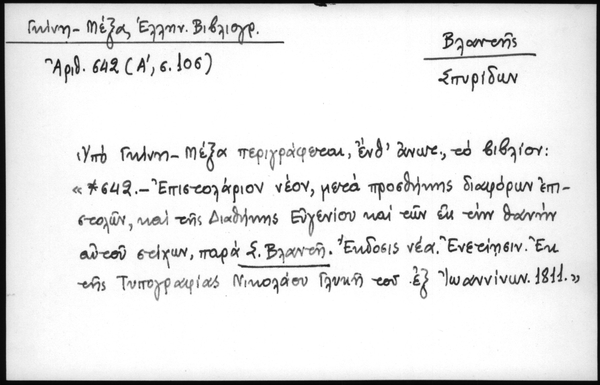 Γκίνη-Μέξα, Ἑλλην. Βιβλιογρ.
Ἀριθ. 642 (Α', σ. 106)
Βλαντῆς
Σπυρίδων
Ὑπὸ Γκίνη-Μέξα περιγράφεται, ἔνθ' ἀνωτ., τὸ βιβλίον:
« *642.- Ἐπιστολάριον νέον, μετὰ προσθήκης διαφόρων ἐπι-
στολῶν, καὶ τῆς Διαθήκης Εὐγενίου καὶ τῶν εἰς τὴν θανὴν
αὐτοῦ στίχων, παρὰ Σ. Βλαντῆ. Ἔκδοσις νέα. Ἐνετίησιν. Ἐκ
τῆς Τυπογραφίας Νικολάου Γλυκῆ τοῦ ἐξ Ἰωαννίνων. 1811.»